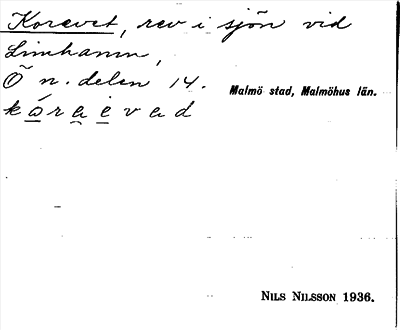 Korevet, rev i sjön vid
Limhamn,
Ö n. delen 14.
Malmö stad, Malmöhus län.
kóraevad
NILS NILSSON 1936.